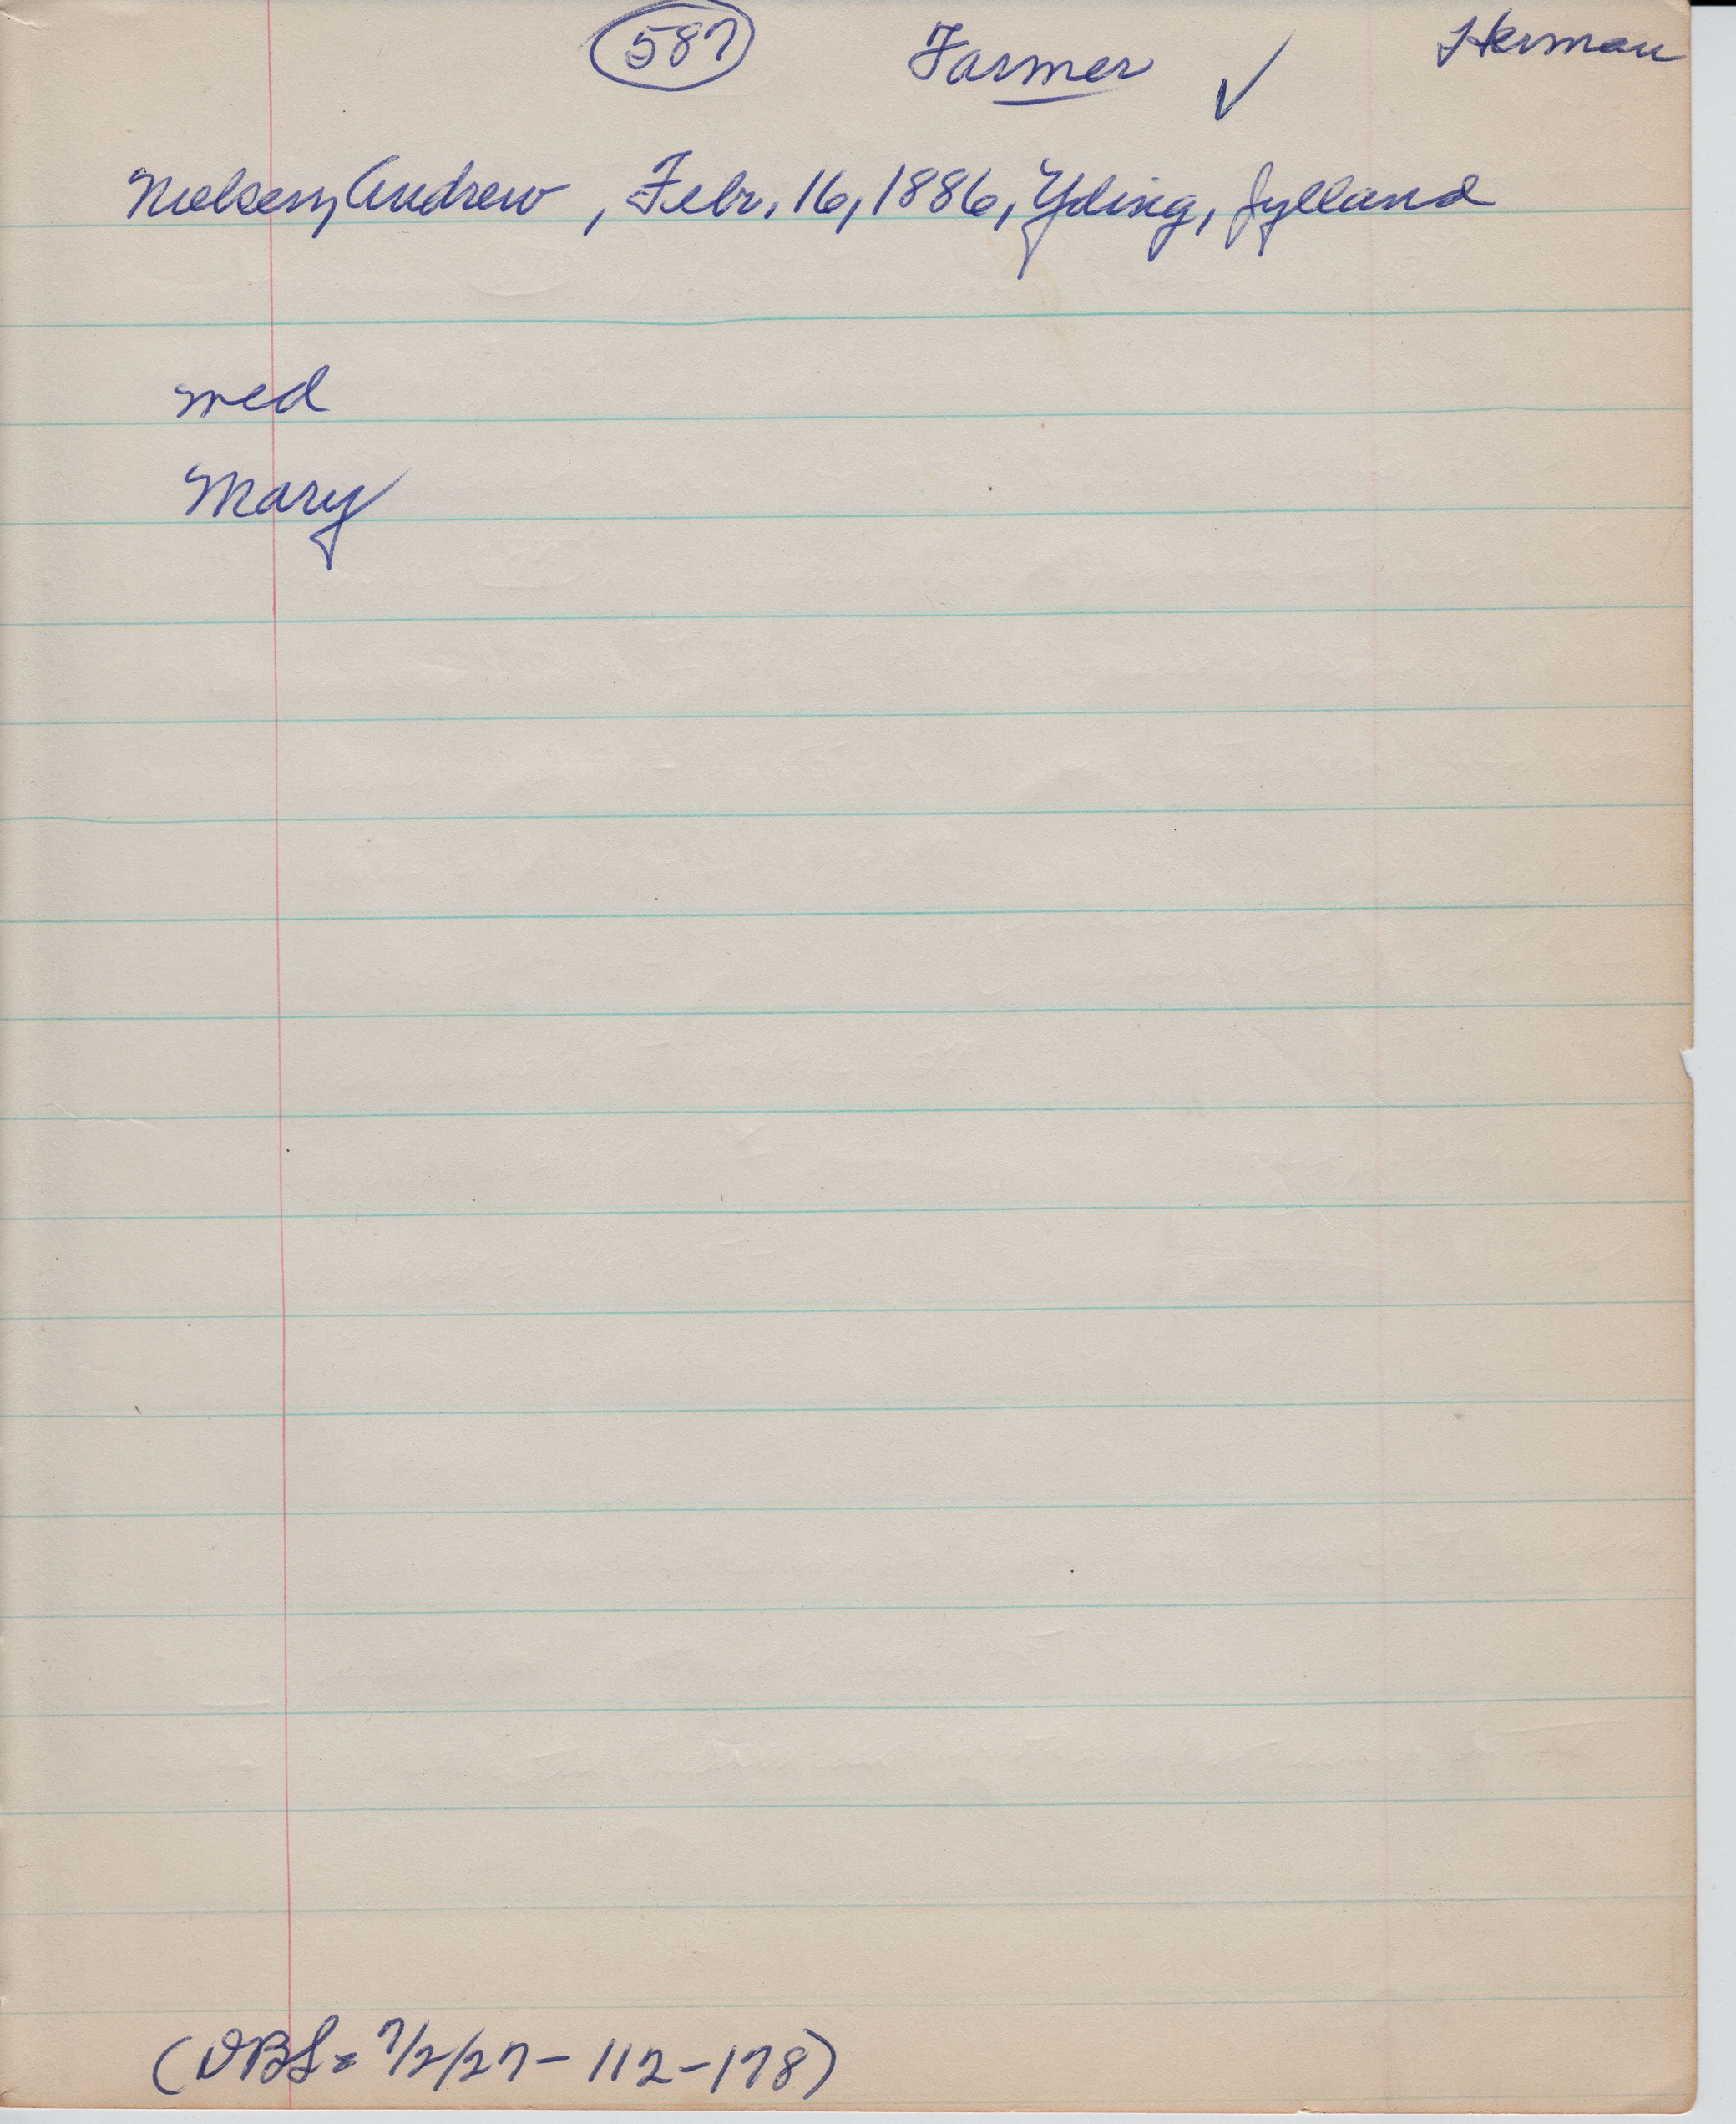 587 Farmer ✓ Herman
Nielsen, Andrew, Febr. 16, 1886, Yding, Jylland
med
Mary
(DBS= 7/2/27 - 112 - 178)